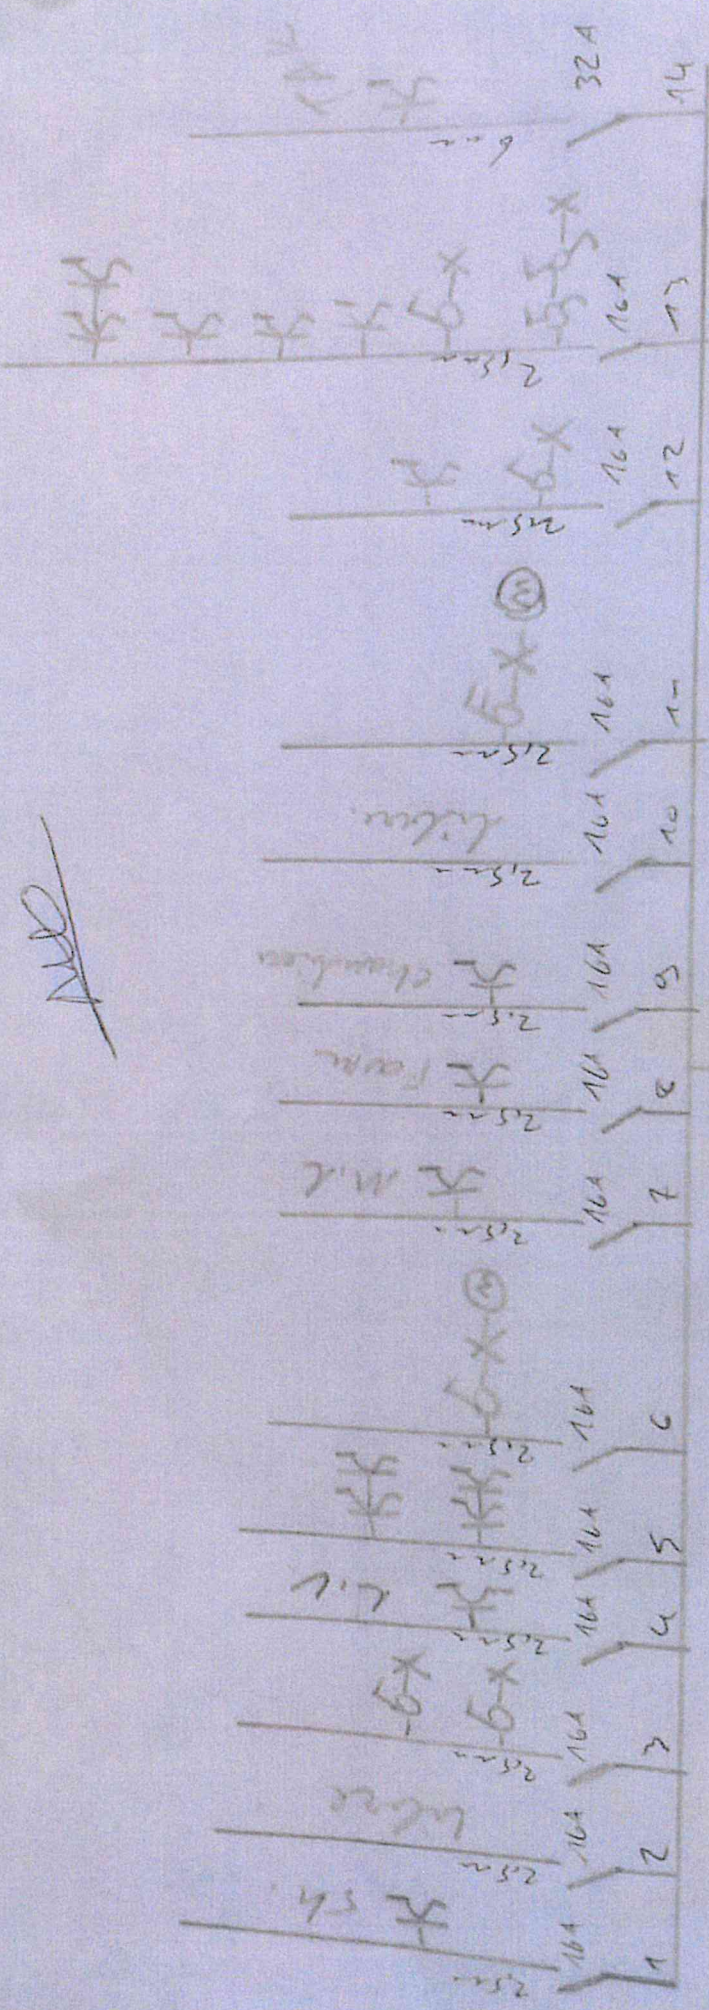 1 16A 2,5m Sh.
2 16A 2,5m libre
3 16A 2,5m
4 16A 2,5m L.V
5 16A 2,5m
6 16A 2,5m 3
7 16A 2,5m M.L
8 16A 2,5m Four
9 16A 2,5m Chaudière
10 16A 2,5m libre
11 16A 2,5m 3
12 16A 2,5m
13 16A 2,5m
14 32A 6m